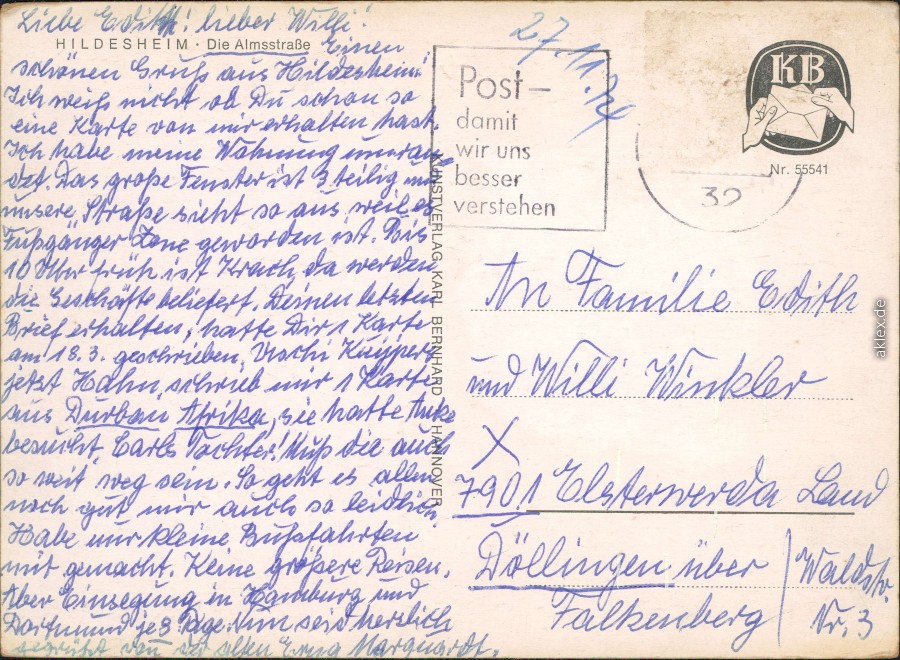 Liebe Edith! lieber Willi!
HILDESHEIM · Die Almsstraße
Einen
schönen Gruß aus Hildesheim
Ich weiß nicht ob Du schon so
eine Karte von mir erhalten hast.
Ich habe meine Wohnung umran
det. Das große Fenster ist 3 teilig und
unsere „Straße sieht so aus, weil es
Fußgänger Zone geworden ist. Bis
10 Uhr früh ist Krach, da werden
die Geschäfte beliefert. Deinen letzten
Brief erhalten, hatte Dir 1 Karte
am 18.3. geschrieben, Uschi Küppers
jetzt Hahn, schrieb mir 1 Karte
aus Durban Afrika, sie hatte Anke
besucht, Carls Tochter! Muß die auch
so weit weg sein. So geht es allen
noch gut mir auch so leidlich
Habe nur kleine Bußfahrten
mit gemacht. Keine größere Reisen,
Aber Einsegung in Hamburg und
Dortmund je 3 Tage. Nun seid herzlich
gegrüßt von der alten Erna Marquardt.
KUNSTVERLAG KARL BERNHARD HANNOVER
27.11.74
Post –
damit
wir uns
besser
verstehen
32
KB
Nr. 55541
An Familie Edith
und Willi Winkler
X
7901 Elsterwerda Land
Döllingen über
Falkenberg
Waldstr.
Nr. 3
aklex.de